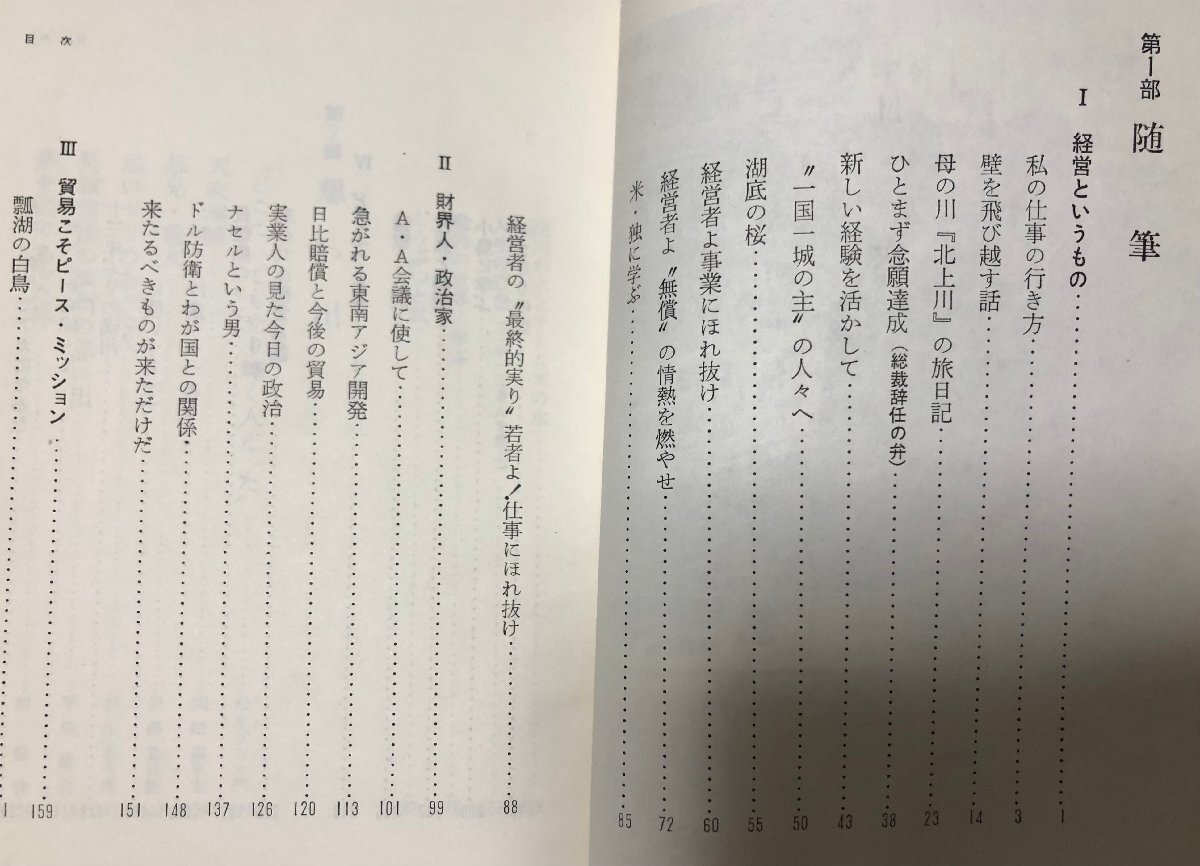 第1部 随筆
Ⅰ 経営というもの……………1
私の仕事の行き方……………3
壁を飛び越す話……………14
母の川『北上川』の旅日記……………23
ひとまず念願達成(総裁辞任の弁)……………38
新しい経験を活かして……………43
〝一国一城の主〟の人々へ……………50
湖底の桜……………55
経営者よ事業にほれ抜け……………60
経営者よ〝無償〟の情熱を燃やせ……………72
米・独に学ぶ……………85
目次
経営者の〝最終的実り〟若者よ!仕事にほれ抜け……………88
Ⅱ 財界人・政治家……………99
A・A会議に使して……………101
急がれる東南アジア開発……………113
日比賠償と今後の貿易……………120
実業人の見た今日の政治……………126
ナセルという男……………137
ドル防衛とわが国との関係……………148
来たるべきものが来ただけだ……………151
Ⅲ 貿易こそピース・ミッション……………159
瓢湖の白鳥……………